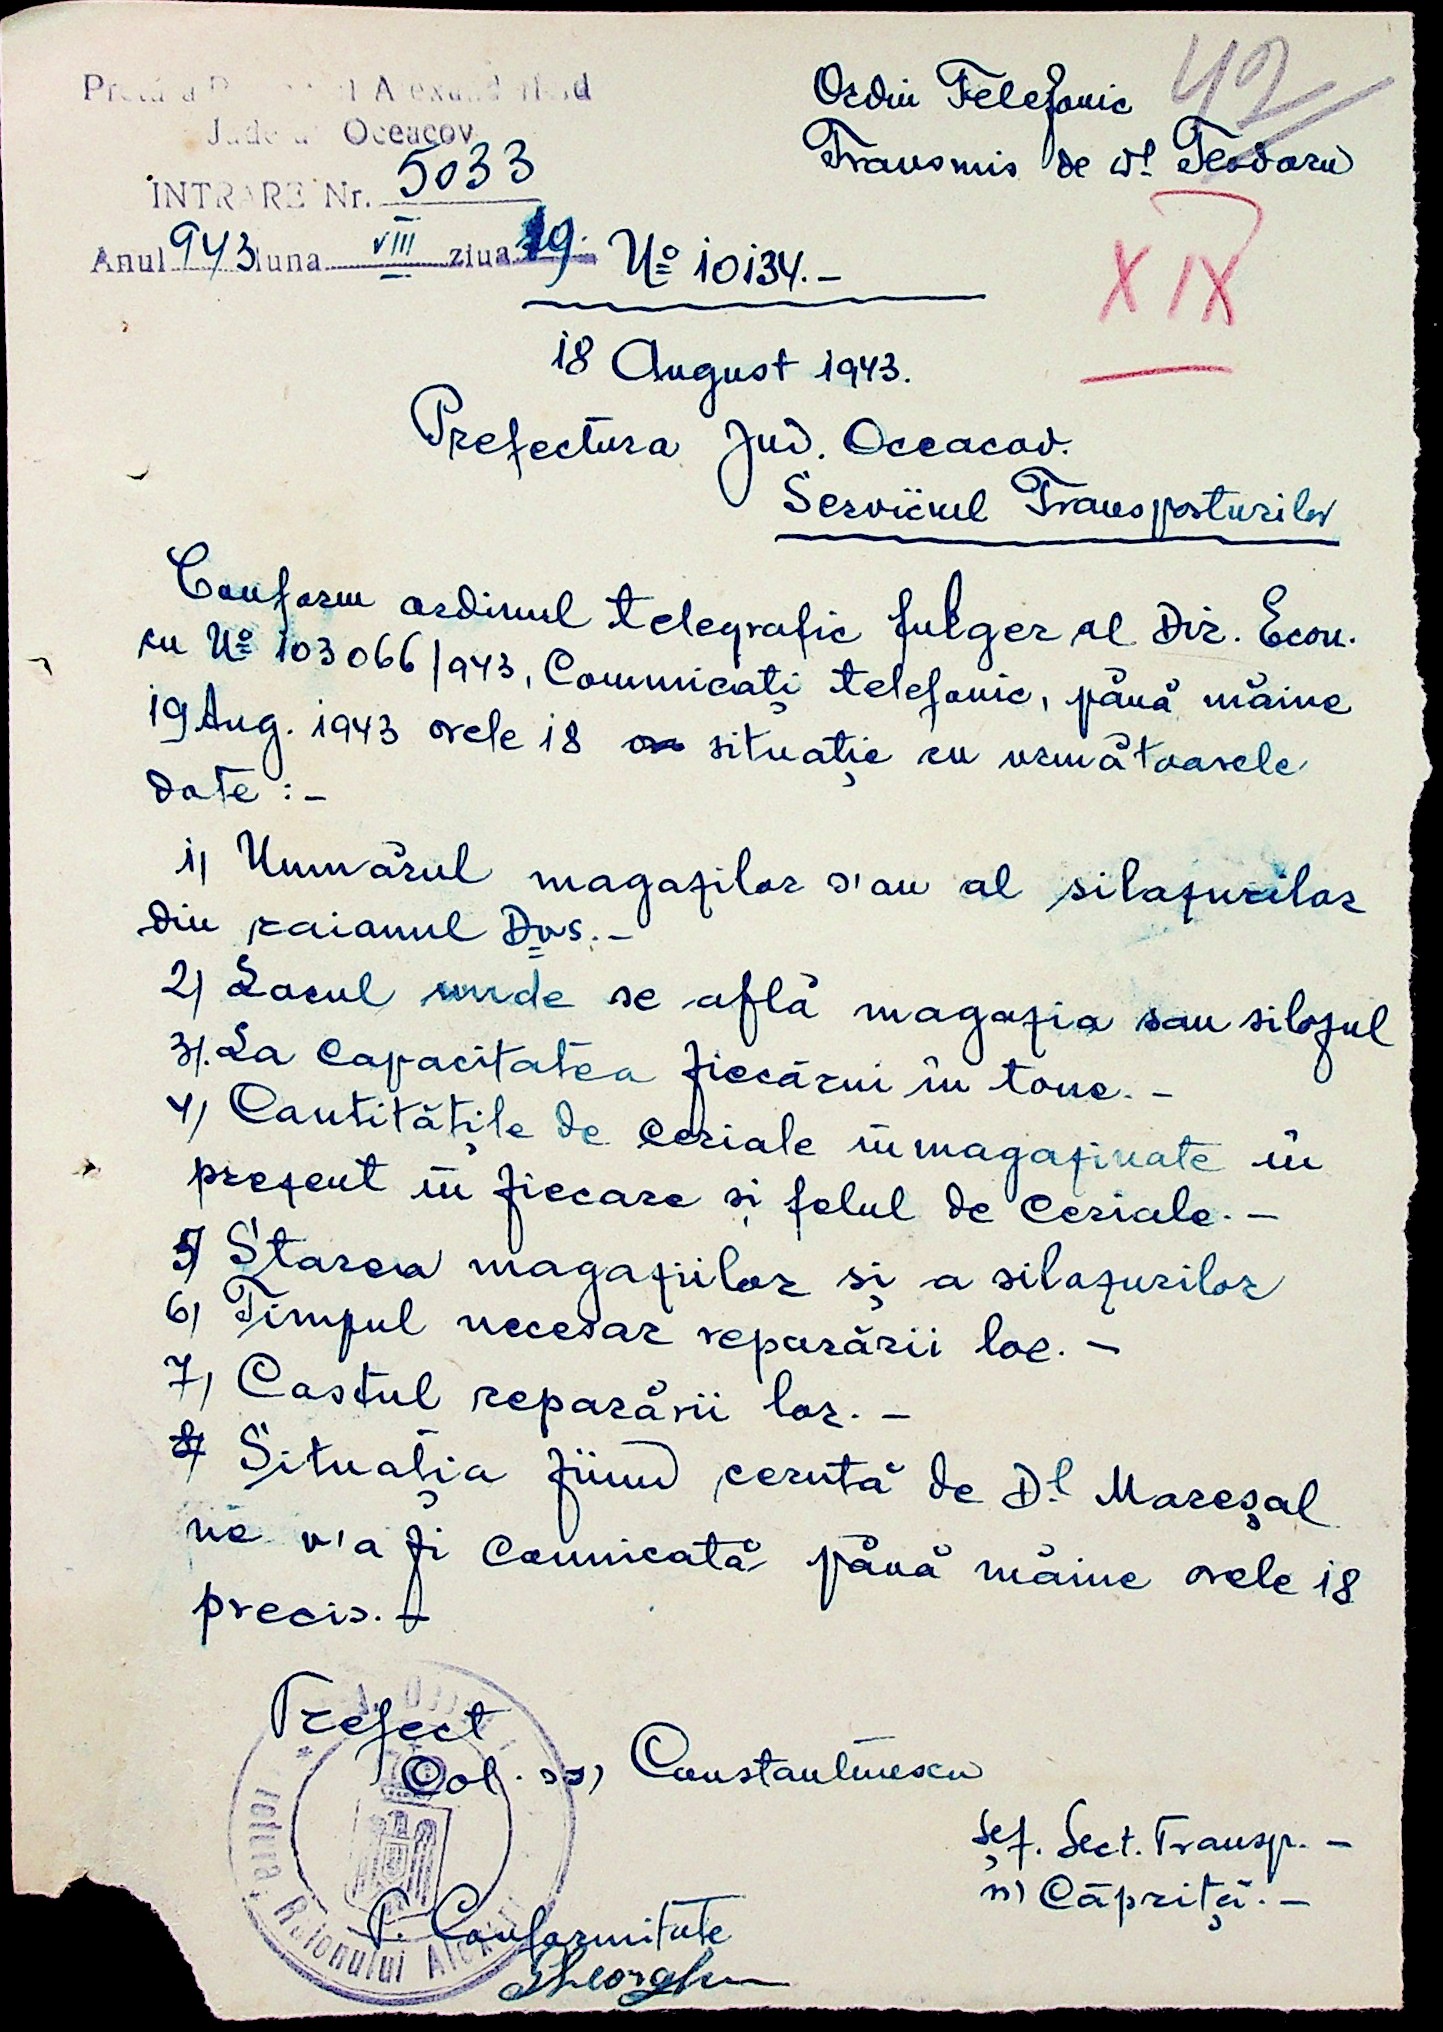 Ordin Telefonic
Transmis de dl Teodoru
42
Județul Oceacov
INTRARE Nr. 5033
Anul 943 luna VIII ziua 19
XIX
No 10134.-
18 August 1943.
Prefectura Jud. Oceacov.
Serviciul Transporturilor
Conform ordinul telegrafic fulger al Dir. Econ.
cu No 103066/943, Comunicați telefonic, până mâine
19 Aug. 1943 orele 18 situație cu următoarele
date:-
1) Numărul magaziilor s'au al silozurilor
din raionul Dvs.-
2) Locul unde se află magazia sau silozul
3). La capacitatea fiecărui în tone.-
4) Cantitățile de ceriale înmagazinate în
prezent în fiecare și felul de ceriale.-
5) Starea magaziilor și a silozurilor
6) Timpul necesar reparării lor.-
7) Costul reparării lor.-
Situația fiind cerută de Dl Mareșal
ne v'a fi comnicată până mâine orele 18
precis.-
Prefect
Col. ss) Constantinescu
Șef. Sect. Transp.-
ss) Căpriță.-
P. Conformitate
Gheorghiu
Raionului